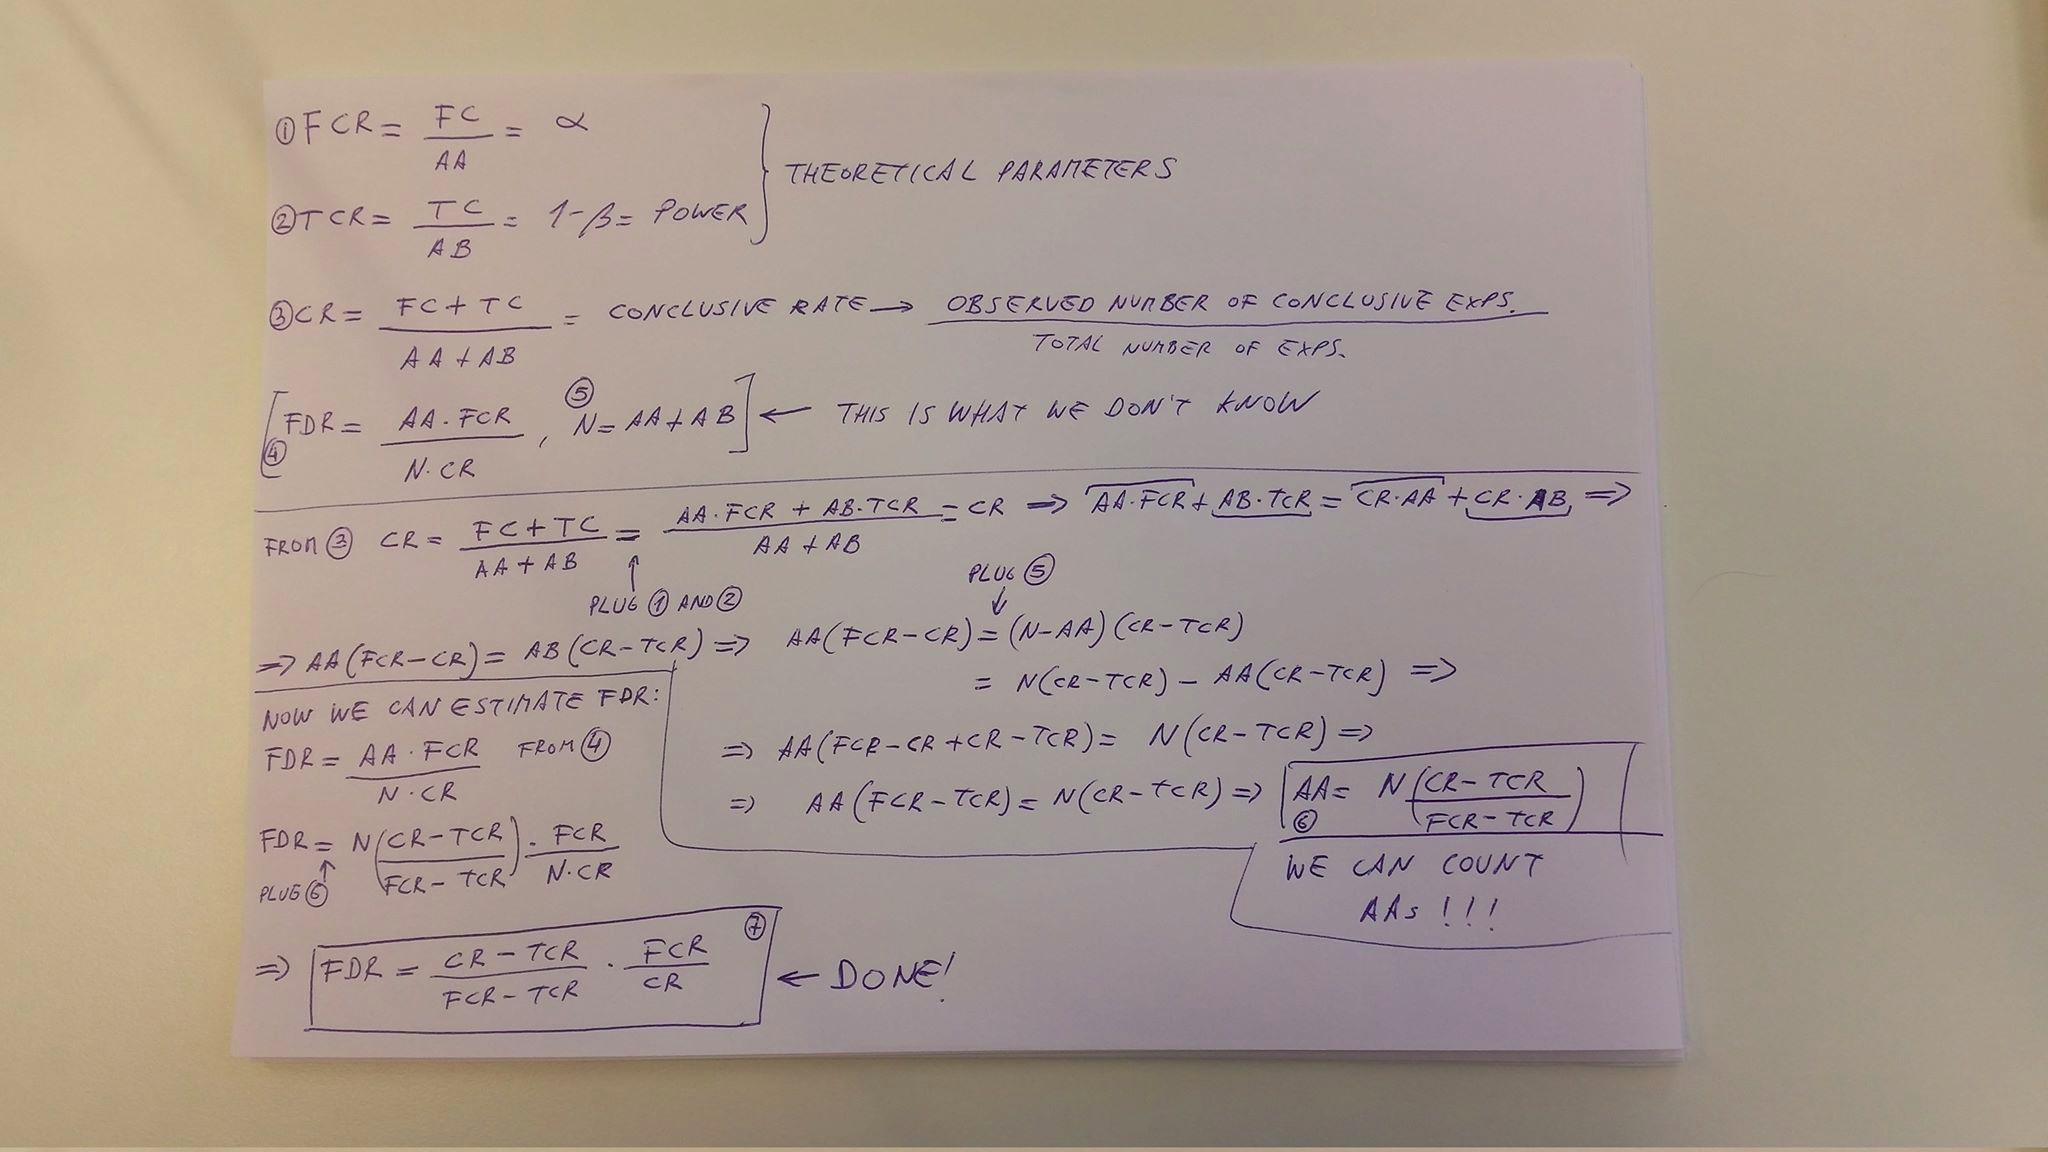 ① FCR = FC/AA = α
② TCR = TC/AB = 1-β = POWER
THEORETICAL PARAMETERS
③ CR = (FC + TC)/(AA + AB) = CONCLUSIVE RATE → OBSERVED NUMBER OF CONCLUSIVE EXPS. / TOTAL NUMBER OF EXPS.
④ [FDR = (AA · FCR)/(N · CR), ⑤ N = AA + AB] ← THIS IS WHAT WE DON'T KNOW
FROM ③ CR = (FC + TC)/(AA + AB) = (AA · FCR + AB · TCR)/(AA + AB) = CR ⇒ AA·FCR + AB·TCR = CR·AA + CR·AB ⇒
↑ PLUG ① AND ②
⇒ AA(FCR-CR) = AB(CR-TCR) ⇒ AA(FCR-CR) = (N-AA)(CR-TCR)
PLUG ⑤ ↓
= N(CR-TCR) - AA(CR-TCR) ⇒
⇒ AA(FCR-CR+CR-TCR) = N(CR-TCR) ⇒
⇒ AA(FCR-TCR) = N(CR-TCR) ⇒ AA = N((CR-TCR)/(FCR-TCR)) ⑥
WE CAN COUNT
AAs !!!
NOW WE CAN ESTIMATE FDR:
FDR = (AA · FCR)/(N · CR) FROM ④
FDR = N((CR-TCR)/(FCR-TCR)) · FCR/(N·CR)
↑ PLUG ⑥
⇒ FDR = (CR-TCR)/(FCR-TCR) · FCR/CR ⑦ ← DONE!